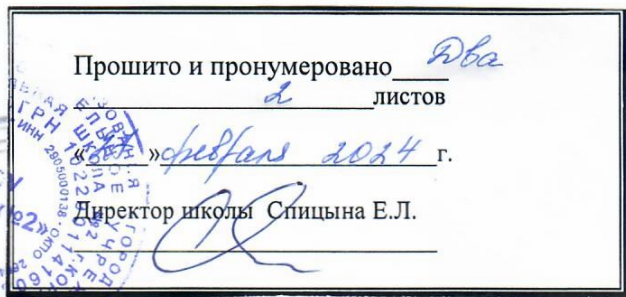 Прошито и пронумеровано Два
2 листов
« » февраля 2024 г.
Директор школы Спицына Е.Л.
ИНН 2905000138